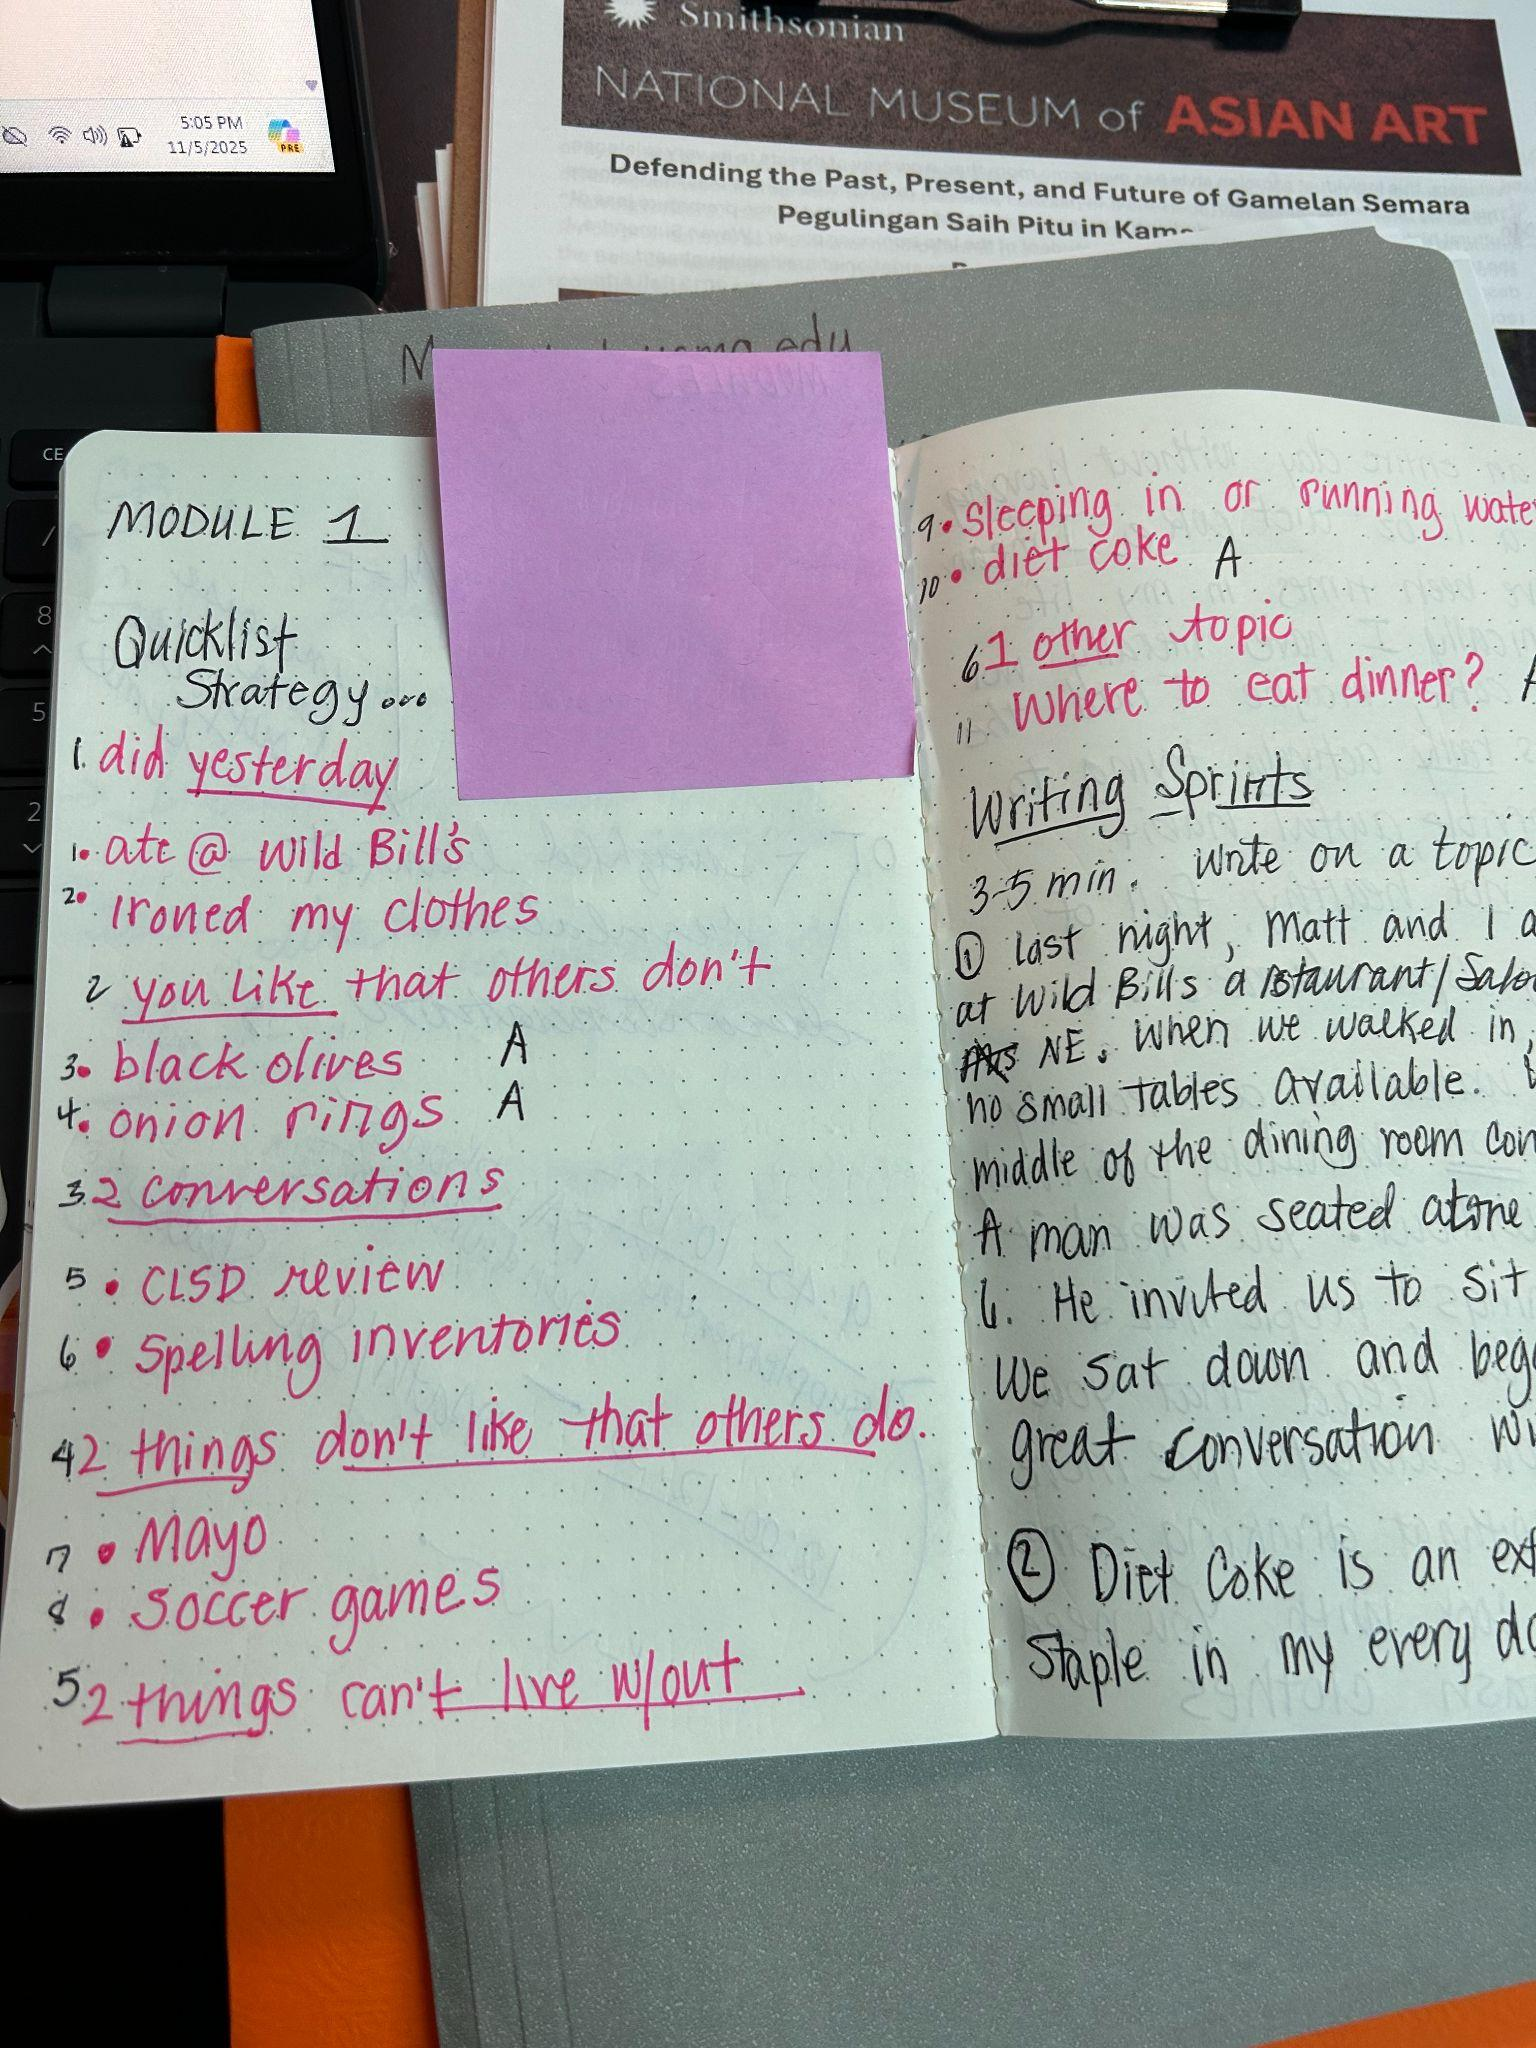 Smithsonian
NATIONAL MUSEUM of ASIAN ART
Defending the Past, Present, and Future of Gamelan Semara
Pegulingan Saih Pitu in
5:05 PM
11/5/2025
PRE
CE
8
5
2
edu
MODULE 1
Quicklist
Strategy...
1. did yesterday
1. • ate @ Wild Bill's
2. • Ironed my clothes
2 you like that others don't
3. • black olives A
4. • onion rings A
3. 2 conversations
5 • CLSD review
6 • Spelling inventories
4 2 things don't like that others do.
7 • Mayo
8 • Soccer games
5. 2 things can't live w/out
9 • sleeping in or running wate
10 • diet coke A
6 1 other topic
11 Where to eat dinner? A
Writing Sprints
3-5 min. Write on a topic
① Last night, Matt and I a
at Wild Bills a restaurant/Saloo
NE. When we walked in,
no small tables available.
middle of the dining room con
A man was seated alone
6. He invited us to sit
We sat down and bega
great conversation wi
② Diet Coke is an ext
Staple in my every da